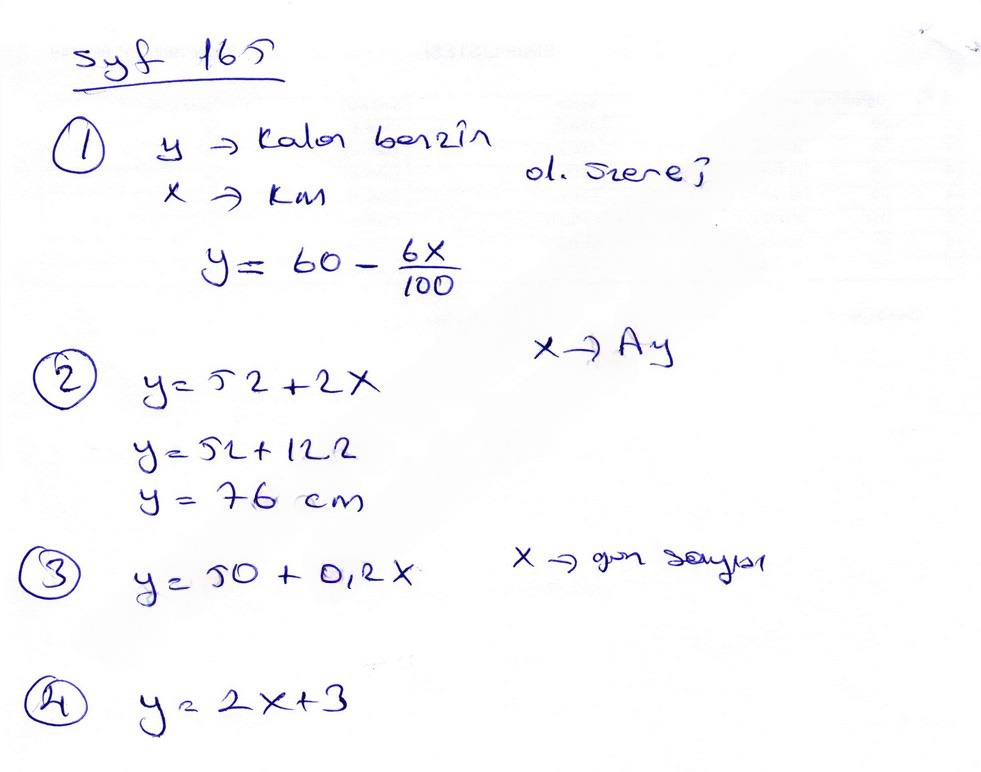 syf 165
① y → Kalan benzin
x → km
ol. üzere;
y = 60 - 6x/100
x → Ay
② y = 52 + 2x
y = 52 + 12.2
y = 76 cm
③ y = 50 + 0,2x
x → gün sayısı
④ y = 2x+3